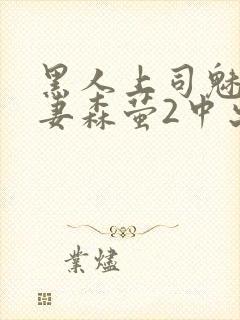 黑人上司魅
妻森萤2中出
業燼